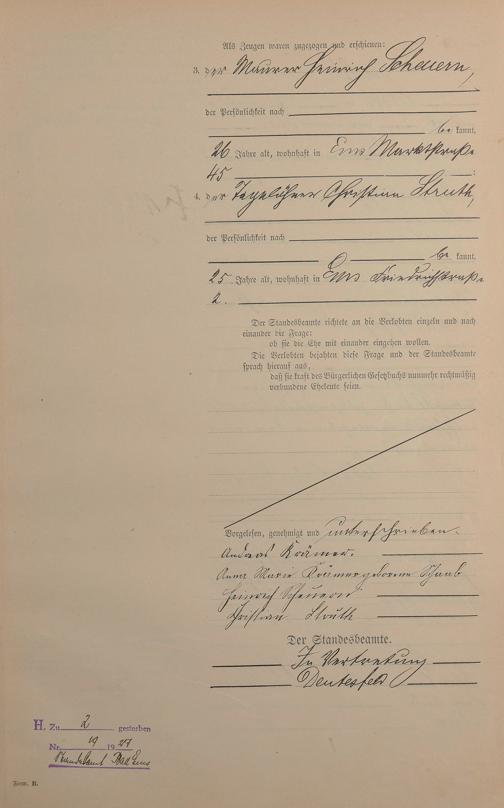 Als Zeugen waren zugezogen und erschienen:
3. der Maurer Heinrich Scheuern,
der Persönlichkeit nach
be kannt,
26 Jahre alt, wohnhaft in Ems Marktstraße
45 ;
4. der Tagelöhner Christian Struth,
der Persönlichkeit nach
be kannt,
25 Jahre alt, wohnhaft in Ems Friedrichstraße
2.
Der Standesbeamte richtete an die Verlobten einzeln und nach
einander die Frage:
ob sie die Ehe mit einander eingehen wollen.
Die Verlobten bejahten diese Frage und der Standesbeamte
sprach hierauf aus,
daß sie kraft des Bürgerlichen Gesetzbuchs nunmehr rechtmäßig
verbundene Eheleute seien.
Vorgelesen, genehmigt und unterschrieben.
Andreas Krämer.
Anna Marie Krämer geborene Schaub
Heinrich Scheuern
Christian Struth
Der Standesbeamte.
In Vertretung
Deutesfeld
H. Zu 2 gestorben
Nr. 19 1927
Standesamt Bad Ems
Form. B.